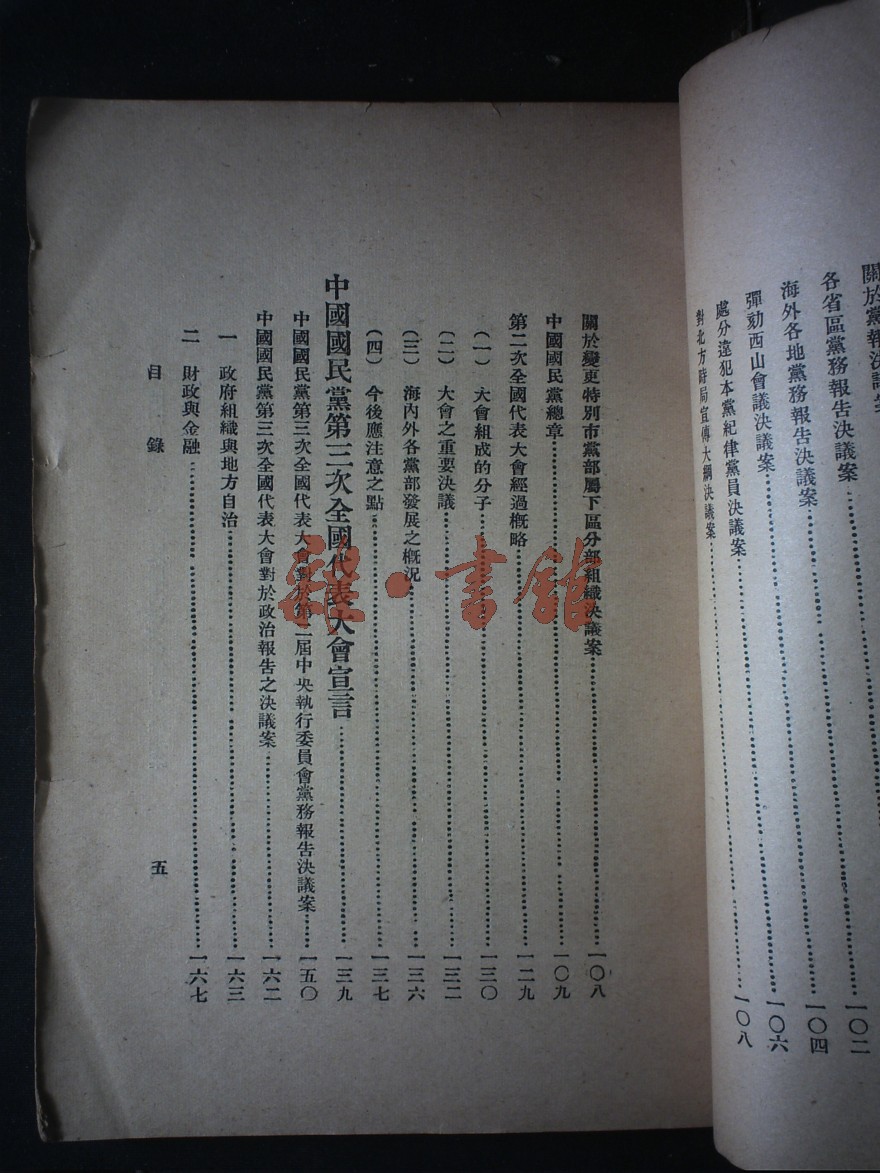 關於黨報決議案
各省區黨務報告決議案 一〇二
海外各地黨務報告決議案 一〇四
彈劾西山會議決議案 一〇六
處分違犯本黨紀律黨員決議案
對北方時局宣傳大綱決議案 一〇八
關於變更特別市黨部屬下區分部組織決議案 一〇八
中國國民黨總章 一〇九
第二次全國代表大會經過概略 一二九
(一) 大會組成的分子 一三〇
(二) 大會之重要決議 一三二
(三) 海內外各黨部發展之概況 一三六
(四) 今後應注意之點 一三七
中國國民黨第三次全國代表大會宣言 一三九
中國國民黨第三次全國代表大會對於第二屆中央執行委員會黨務報告決議案 一五〇
中國國民黨第三次全國代表大會對於政治報告之決議案 一六二
一 政府組織與地方自治 一六三
二 財政與金融 一六七
目錄 五
書館